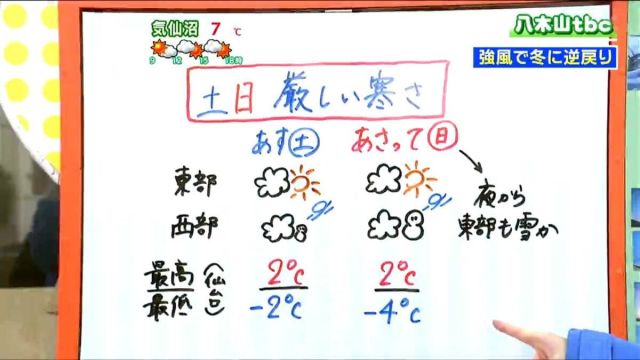 気仙沼 7℃
9 12 15 18時
八木山tbc
強風で冬に逆戻り
土日 厳しい寒さ
あす(土) あさって(日)
東部
西部
夜から
東部も雪か
最高 (仙台) 2℃ 2℃
最低 -2℃ -4℃